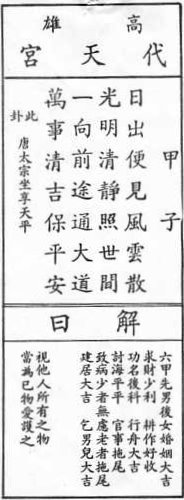 高雄
代天宮
甲子
日出便見風雲散
光明清靜照世間
一向前途通大道
萬事清吉保平安
此卦 唐太宗坐享天平
解曰
六甲先男後女婚姻大吉
求財少利 耕作好收
功名後科 行舟大吉
討海平平 官事拖尾
致病少者無慮老者拖尾
建居大吉 乞男兒大吉
視他人所有之物
當為己物愛護之